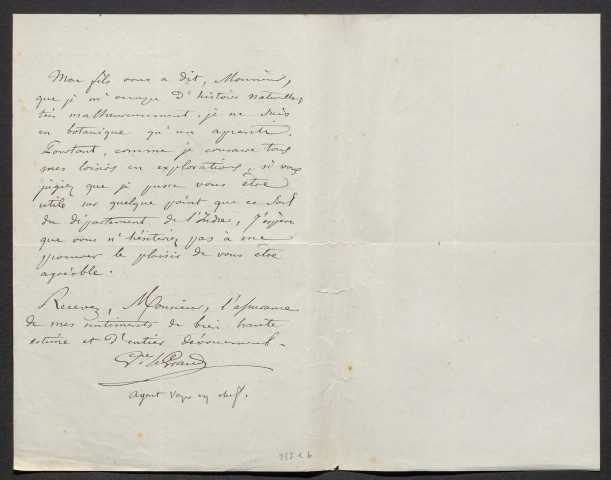 Mon fils vous a dit, Monsieur,
que je m'occupe d'histoire naturelle,
très malheureusement, je ne suis
en botanique qu'un aprenti.
Pourtant, comme je consacre tous
mes loisirs en explorations, si vous
jugiez que je pusse vous être
utile sur quelque point que ce soit
du département de l'Indre, j'espère
que vous n'hésiteriez pas à me
procurer le plaisir de vous être
agréable.
Recevez, Monsieur, l'assurance
de mes sentiments de bien haute
estime et d'entier dévouement.
le Grand
agent voyer en chef.